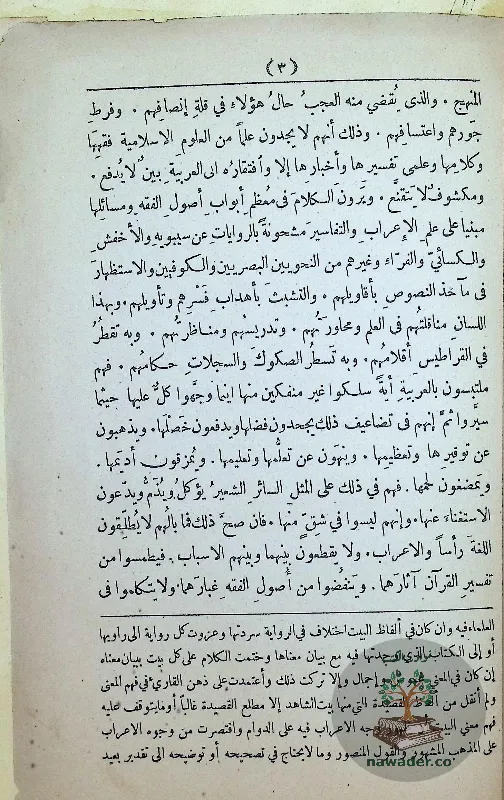 (٣)
المنهج . والذي يُقضي منه العجبُ حالُ هؤلاء في قلةِ إنصافِهم . وفرطِ
جورهم واعتسافهم . وذلك أنهم لا يجدون علماً من العلوم الاسلامية فقهِها
وكلامِها وعلمي تفسيرِها وأخبارِها إلا وافتقارُه الى العربيةِ بينٌ لا يُدفع .
ومكشوفٌ لا يتقنَّع . ويَرون الكلامَ في مُعظمِ أبوابِ أصولِ الفقه ومسائلِها
مبنيا على علمِ الإعراب والتفاسيرَ مشحونةً بالروايات عن سيبويه والأخفشِ
والكسائيّ والفرّاء وغيرهم من النحويين البصريين والكوفيين والاستظهارَ
في مآخذ النصوص بأقاويلهم . والتشبثَ بأهداب فَسْرِهم وتأويلهم . وبهذا
اللسان مناقلتُهم في العلم ومحاورتهُم . وتدريسُهم ومناظرتهُم . وبه تقطُرُ
في القراطيس أقلامُهم . وبه تَسطرُ الصكوكَ والسجلاتِ حكامُهم . فهم
ملتبسون بالعربية أيةً سلكوا غير منفكين منها اينما وجَّهوا كلٌّ عليها حيثما
سيَّروا ثمَّ إنهم في تضاعيف ذلك يجحدون فضلها ويدفعون خَصْلَها . ويذهبون
عن توقيرِها وتعظيمِها . وينهَون عن تعلُّمِها وتعليمِها . ويُمزقون أديمَها .
ويَمضَغون لحمَها . فهم في ذلك على المثل السائر الشعيرُ يؤكلُ ويُذَمُّ ويدَّعون
الاستغناء عنها . وإنهم ليسوا في شِقٍّ منها . فان صحَّ ذلك فما بالُهم لا يُطلِّقون
اللغة رأساً والاعراب . ولا يقطعون بينهما وبينهم الاسباب . فيطمسوا من
تفسير القرآن آثارَهما . وينفُضوا من أُصولِ الفقه غبارَهما . ولا يتكلموا في
العلماء فيه وان كان في ألفاظ البيت اختلاف في الرواية سردتها وعزوت كل رواية الى راويها
أو إلى الكتاب الذي وجدتها فيه مع بيان معناها وختمت الكلام على كل بيت ببيان معناه
إن كان في المعنى وإجمال وإلا تركت ذلك وأعتمدت على ذهن القارئ في فهم المعنى
ولم أنقل من القصيدة التي منها بيت الشاهد إلا مطلع القصيدة غالباً أو ما يتوقف عليه
فهم معنى البيت الاعراب فيه على الدوام واقتصرت من وجوه الاعراب
على المذهب المشهور والقول المنصور وما لا يحتاج في تصحيحه أو توضيحه الى تقدير بعيد
nawader.co